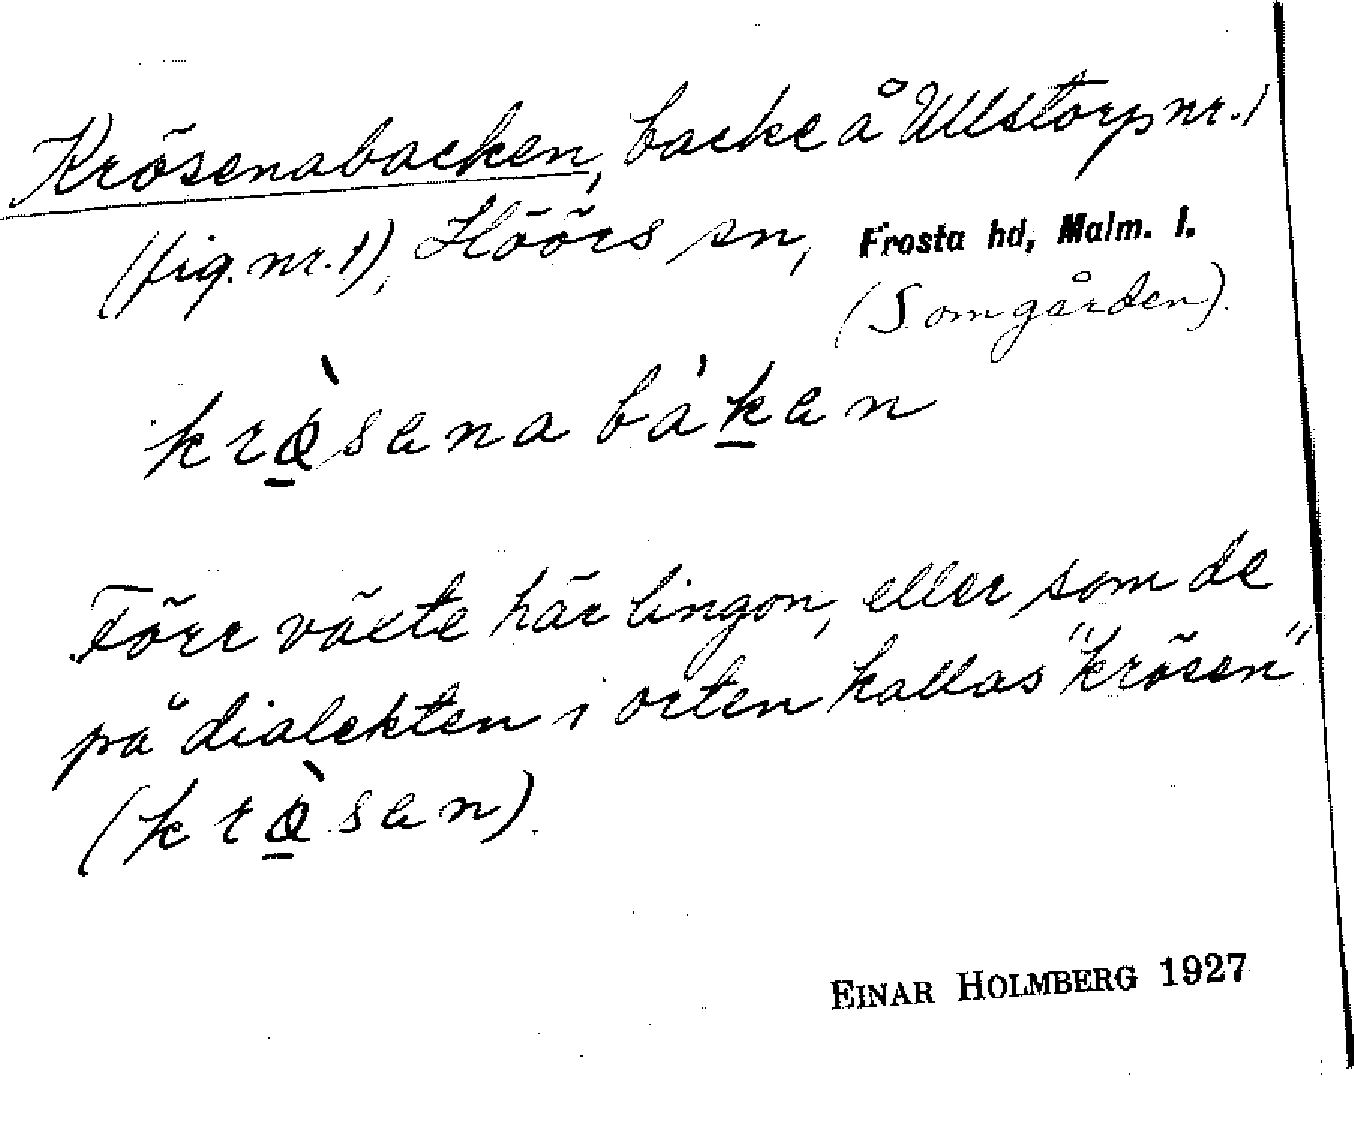 Krösenabacken, backe å Ullstorp nr. 1
(fig. nr. 1), Höörs sn, Frosta hd, Malm. l.
(Somgården).
krø̱̀sena bák̲en
Förr växte här lingon, eller som de
på dialekten i orten kallas "krösen"
(krø̱̀sen).
EINAR HOLMBERG 1927